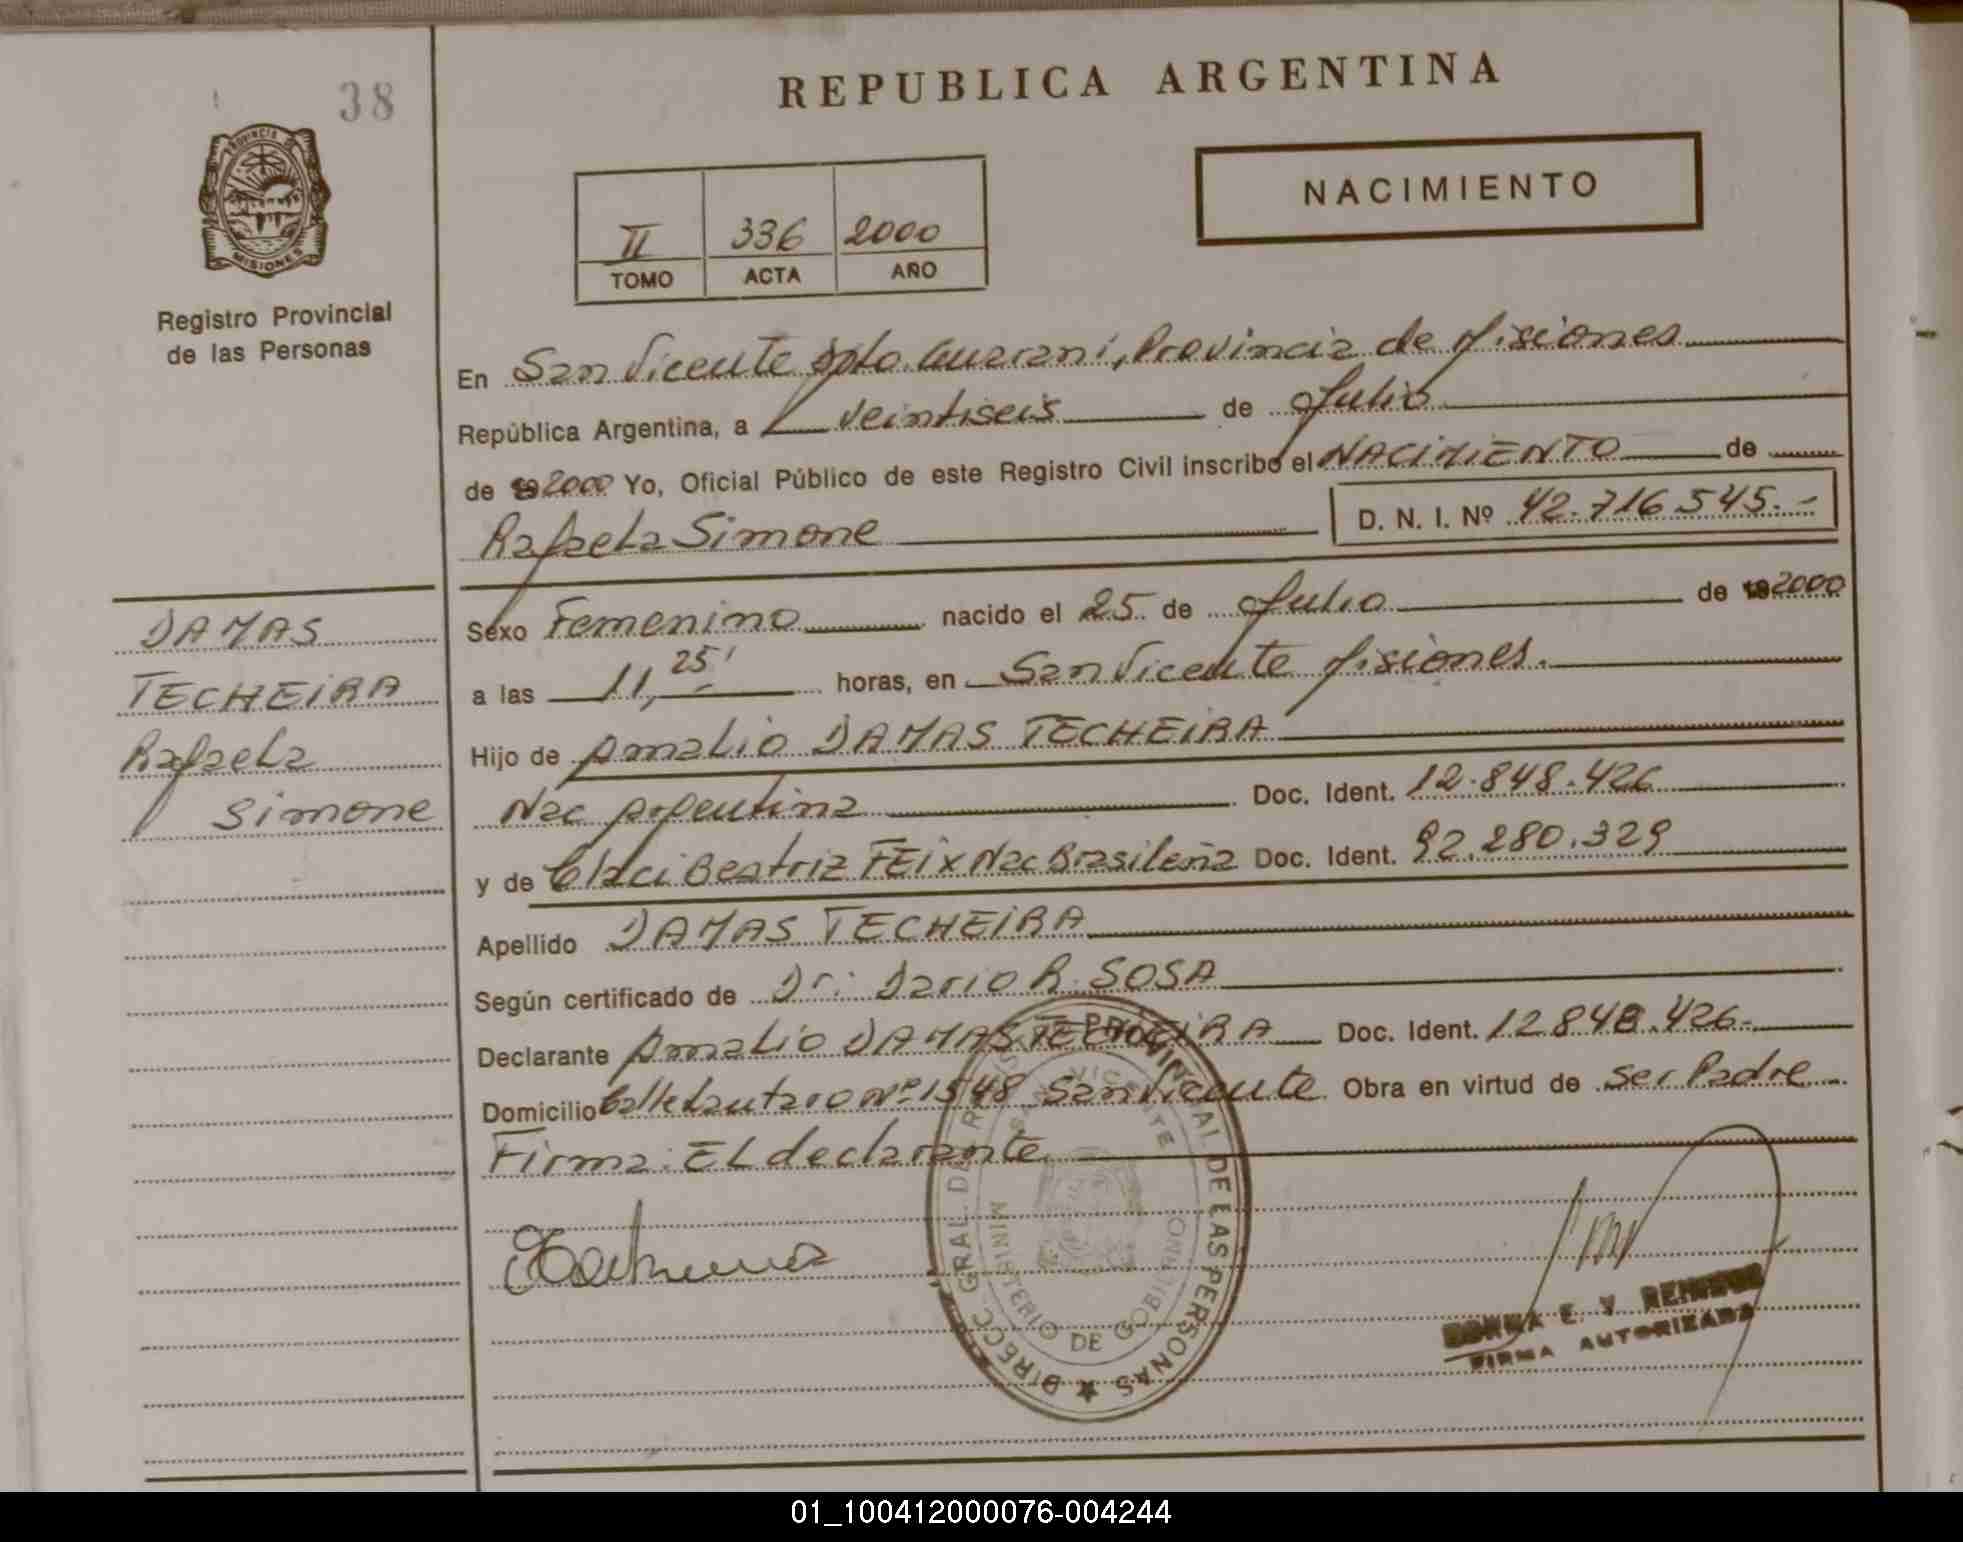 38
PROVINCIA DE
MISIONES
Registro Provincial
de las Personas
REPUBLICA ARGENTINA
NACIMIENTO
II 336 2000
TOMO ACTA AÑO
En San Vicente Dpto. Guarani, Provincia de Misiones
República Argentina, a veintiseis de Julio
de 2000 Yo, Oficial Público de este Registro Civil inscribo el NACIMIENTO de
Rafaela Simone D. N. I. Nº 42.716.545.-
DAMAS
TECHEIRA
Rafaela
Simone
Sexo Femenino nacido el 25 de Julio de 2000
a las 11,25' horas, en San Vicente Misiones.
Hijo de Amalio DAMAS TECHEIRA
Nac Argentina Doc. Ident. 12.848.426
y de Claci Beatriz FEIX Nac Brasileña Doc. Ident. 92.280.329
Apellido DAMAS TECHEIRA
Según certificado de Dr. Dario R. SOSA
Declarante Amalio DAMAS TECHEIRA Doc. Ident. 12848.426-
Domicilio Calle Lautaro Nº 1548 San Vicente Obra en virtud de ser Padre
Firma: EL declarante
DIRECC. GRAL. DEL REGISTRO PROVINCIAL DE LAS PERSONAS
SAN VICENTE
MINISTERIO DE GOBIERNO
E. V.
FIRMA AUTORIZADA
01_100412000076-004244